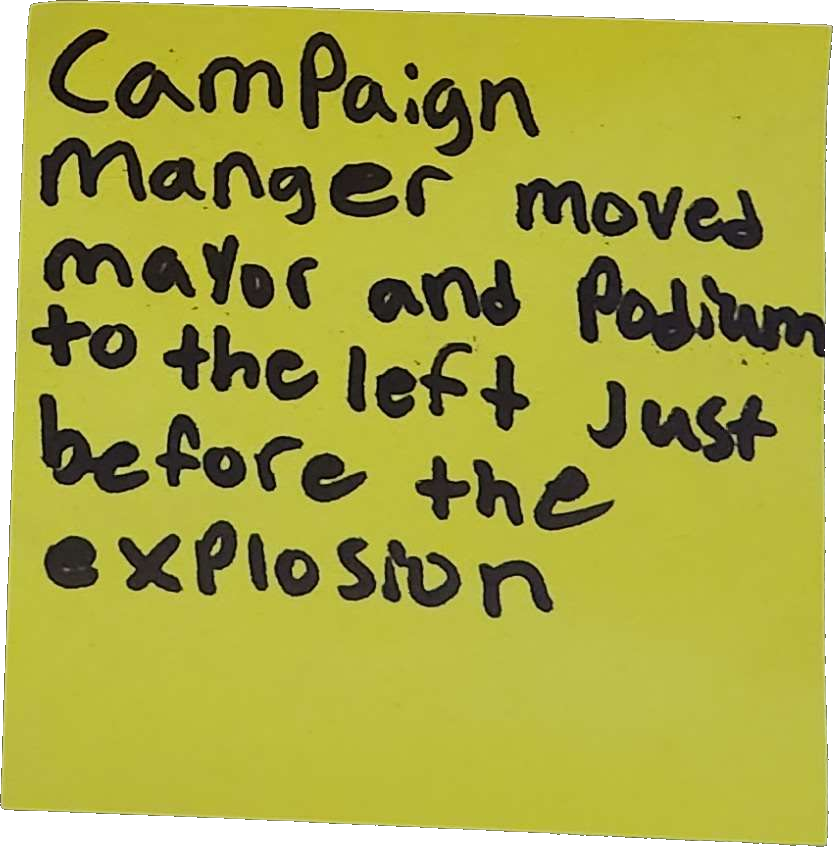 Campaign
manger moved
mayor and Podium
to the left Just
before the
explosion